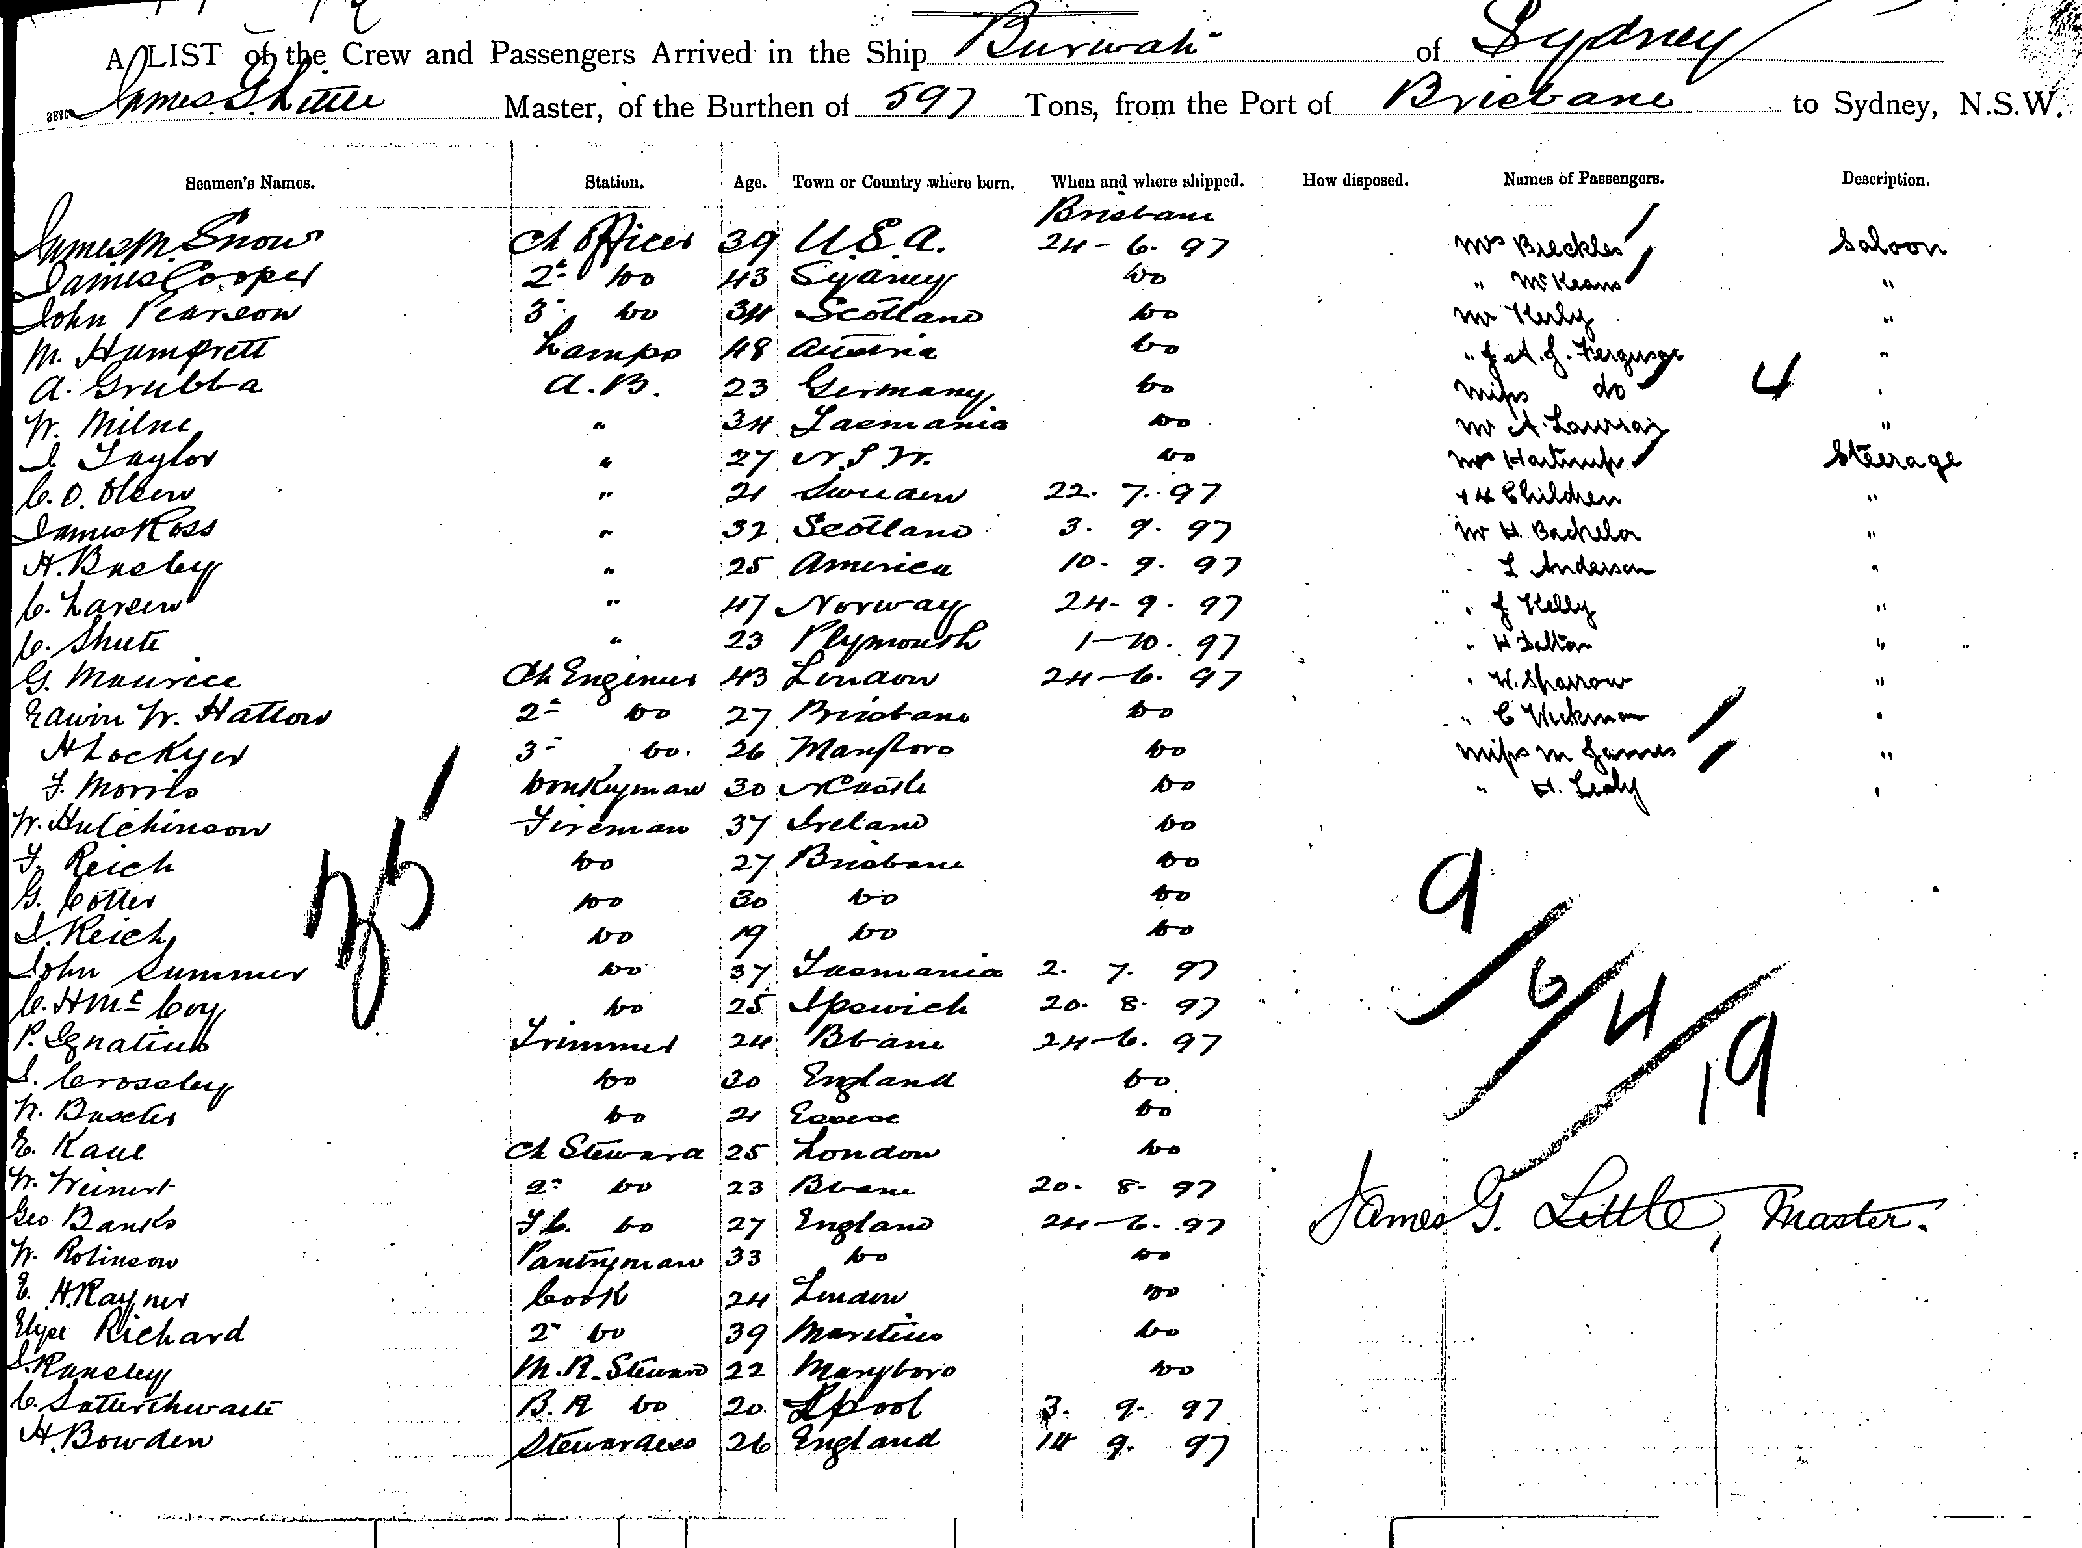 A LIST of the Crew and Passengers Arrived in the Ship Burwah of Sydney
James G Little Master, of the Burthen of 597 Tons, from the Port of Brisbane to Sydney, N.S.W.
Seamen's Names. Station. Age. Town or Country where born. When and where shipped. How disposed. Names of Passengers. Description.
Brisbane
James M. Snow Ch Officer 39 U.S.A. 24-6.97 Mrs Breckles Saloon
James Cooper 2nd Do 43 Sydney Do " McKeans "
John Pearson 3 Do 34 Scotland Do Mr Kerly "
M. Humprett Lamps 48 Austria Do " "
A. Grubba A.B. 23 Germany Do Miss do "
W. Milne " 34 Tasmania Do Mr A. "
J. Taylor " 27 N.S.W. Do Mrs Steerage
C.O. Olsen " 21 Sweden 22.7.97 + 4 Children "
James Ross " 32 Scotland 3.9.97 Mr H. Bachelor "
H. Busby " 25 America 10.9.97 " L Anderson "
C. Larsen " 47 Norway 24-9.97 " J Kelly "
C. Shute " 23 Plymouth 1-10.97 " H "
G. Maurice Ch Engineer 43 London 24-6.97 " W. Sparrow "
Edwin W. Hatton 2nd Do 27 Brisbane Do " C Wickman "
H Lockyer 3 Do. 26 Maryboro Do Miss M James "
F. Morris Donkeyman 30 NCastle Do " H. Lealy "
W. Hutchinson Fireman 37 Ireland Do
F. Reich Do 27 Brisbane Do
G. Cotter Do 30 Do Do
J. Reich Do 19 Do Do
John Summer Do 37 Tasmania 2.7.97
C. H McCoy Do 25 Ipswich 20.8.97
P. Ignatius Trimmer 24 Bbane 24-6.97
J. Crossley Do 30 England Do
W. Baxter Do 21 Essex Do
E. Kaue Ch Steward 25 London Do
W. Weinert 2nd Do 23 Bbane 20.8.97
Geo Banks F C. Do 27 England 24-6.97
W. Robinson Pantryman 33 Do Do
E. H. Rayner Cook 24 London Do
Elyse Richard 2nd Do 39 Maretius Do
J. Ransley M.R. Steward 22 Maryboro Do
C. Satterthwaite B.R Do 20 Lpool 3.9.97
H. Bowden Stewardess 26 England 14 9.97
4
35
9/6/4/19
James G. Little, Master.